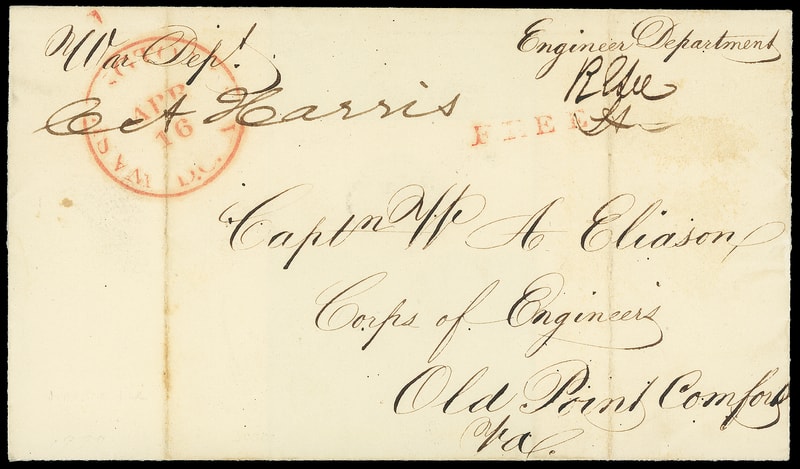 War Dept.
C A Harris
WASHINGTON D.C.
APR
16
Engineer Department
R E Lee
Lt
FREE
Captn W A Eliason
Corps of Engineers
Old Point Comfort
Va.